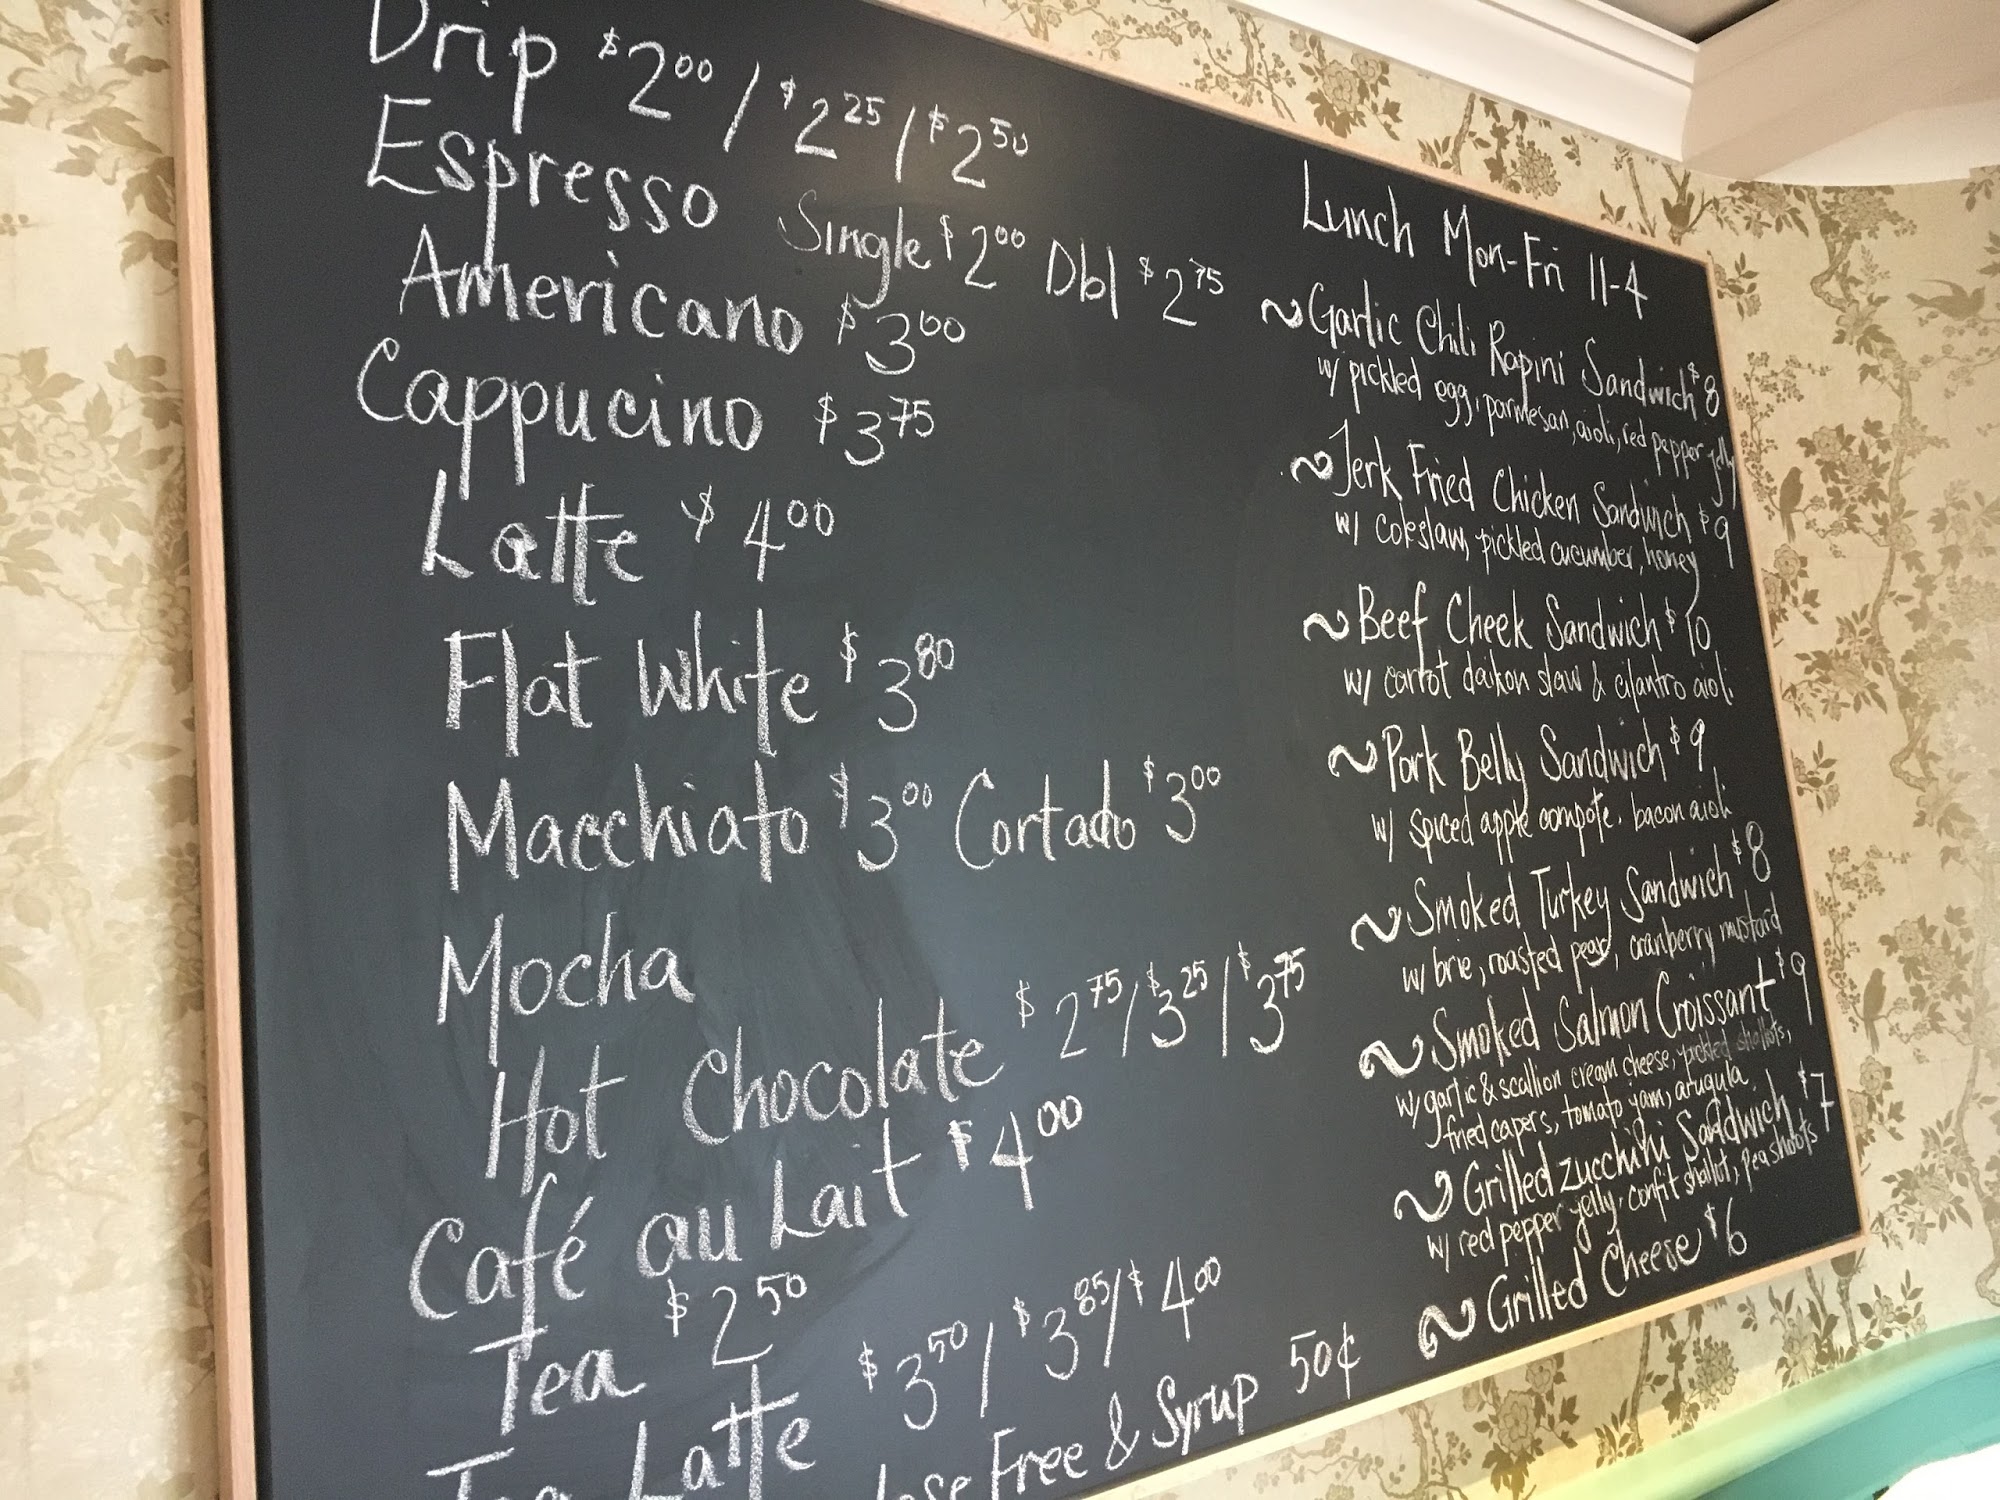 Drip $2.00 / $2.25 / $2.50
Espresso Single $2.00 Dbl $2.75
Americano $3.00
Cappucino $3.75
Latte $4.00
Flat White $3.80
Macchiato $3.00 Cortado $3.00
Mocha
Hot Chocolate $2.75 / $3.25 / $3.75
Café au Lait $4.00
Tea $2.50
Tea Latte $3.50 / $3.85 / $4.00
Free & Syrup 50¢
Lunch Mon-Fri 11-4
~ Garlic Chili Rapini Sandwich $8
w/ pickled egg, parmesan, aioli, red pepper jelly
~ Jerk Fried Chicken Sandwich $9
w/ coleslaw, pickled cucumber, honey
~ Beef Cheek Sandwich $10
w/ carrot daikon slaw & cilantro aioli
~ Pork Belly Sandwich $9
w/ spiced apple compote, bacon aioli
~ Smoked Turkey Sandwich $8
w/ brie, roasted pear, cranberry mustard
~ Smoked Salmon Croissant $9
w/ garlic & scallion cream cheese, pickled shallots,
fried capers, tomato jam, arugula
~ Grilled Zucchini Sandwich $7
w/ red pepper jelly, confit shallot, pea shoots
~ Grilled Cheese $6